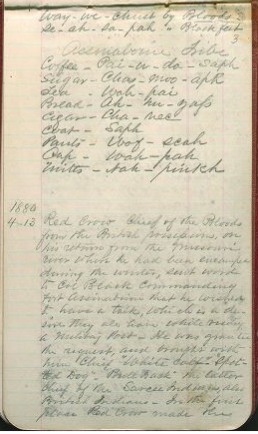 Way-we-chust by Bloods &
Se-ah-sa-pah - Blackfeet
3
Assinaboine Tribe
Coffee - Pai-u-da-Saph
Sugar - Chas-moo-apk
Tea - Wah-pai
Bread - Ah-nu-yafs
Cigar - Cha-nee
Coat - Saph
Pants - Woof-scah
Cap - Wah-pah
Mitts - Nah-pinkh
1880
4-13 Red Crow Chief of the Bloods
from the British possessions, on
his return from the Missouri
river where he had been encamped
during the winter, sent word
to Col Black Commanding
Fort Assinaboine that he wished
to have a talk, which is a de-
sire they also have while visiting
a Military Post. He was granted
the request, and brought with
him Chief "White Calf" "Spot-
ted Dog" "Bull Back" the latter
Chief of the Sarcee Indians, also
British Indians - In the first
place Red Crow made the